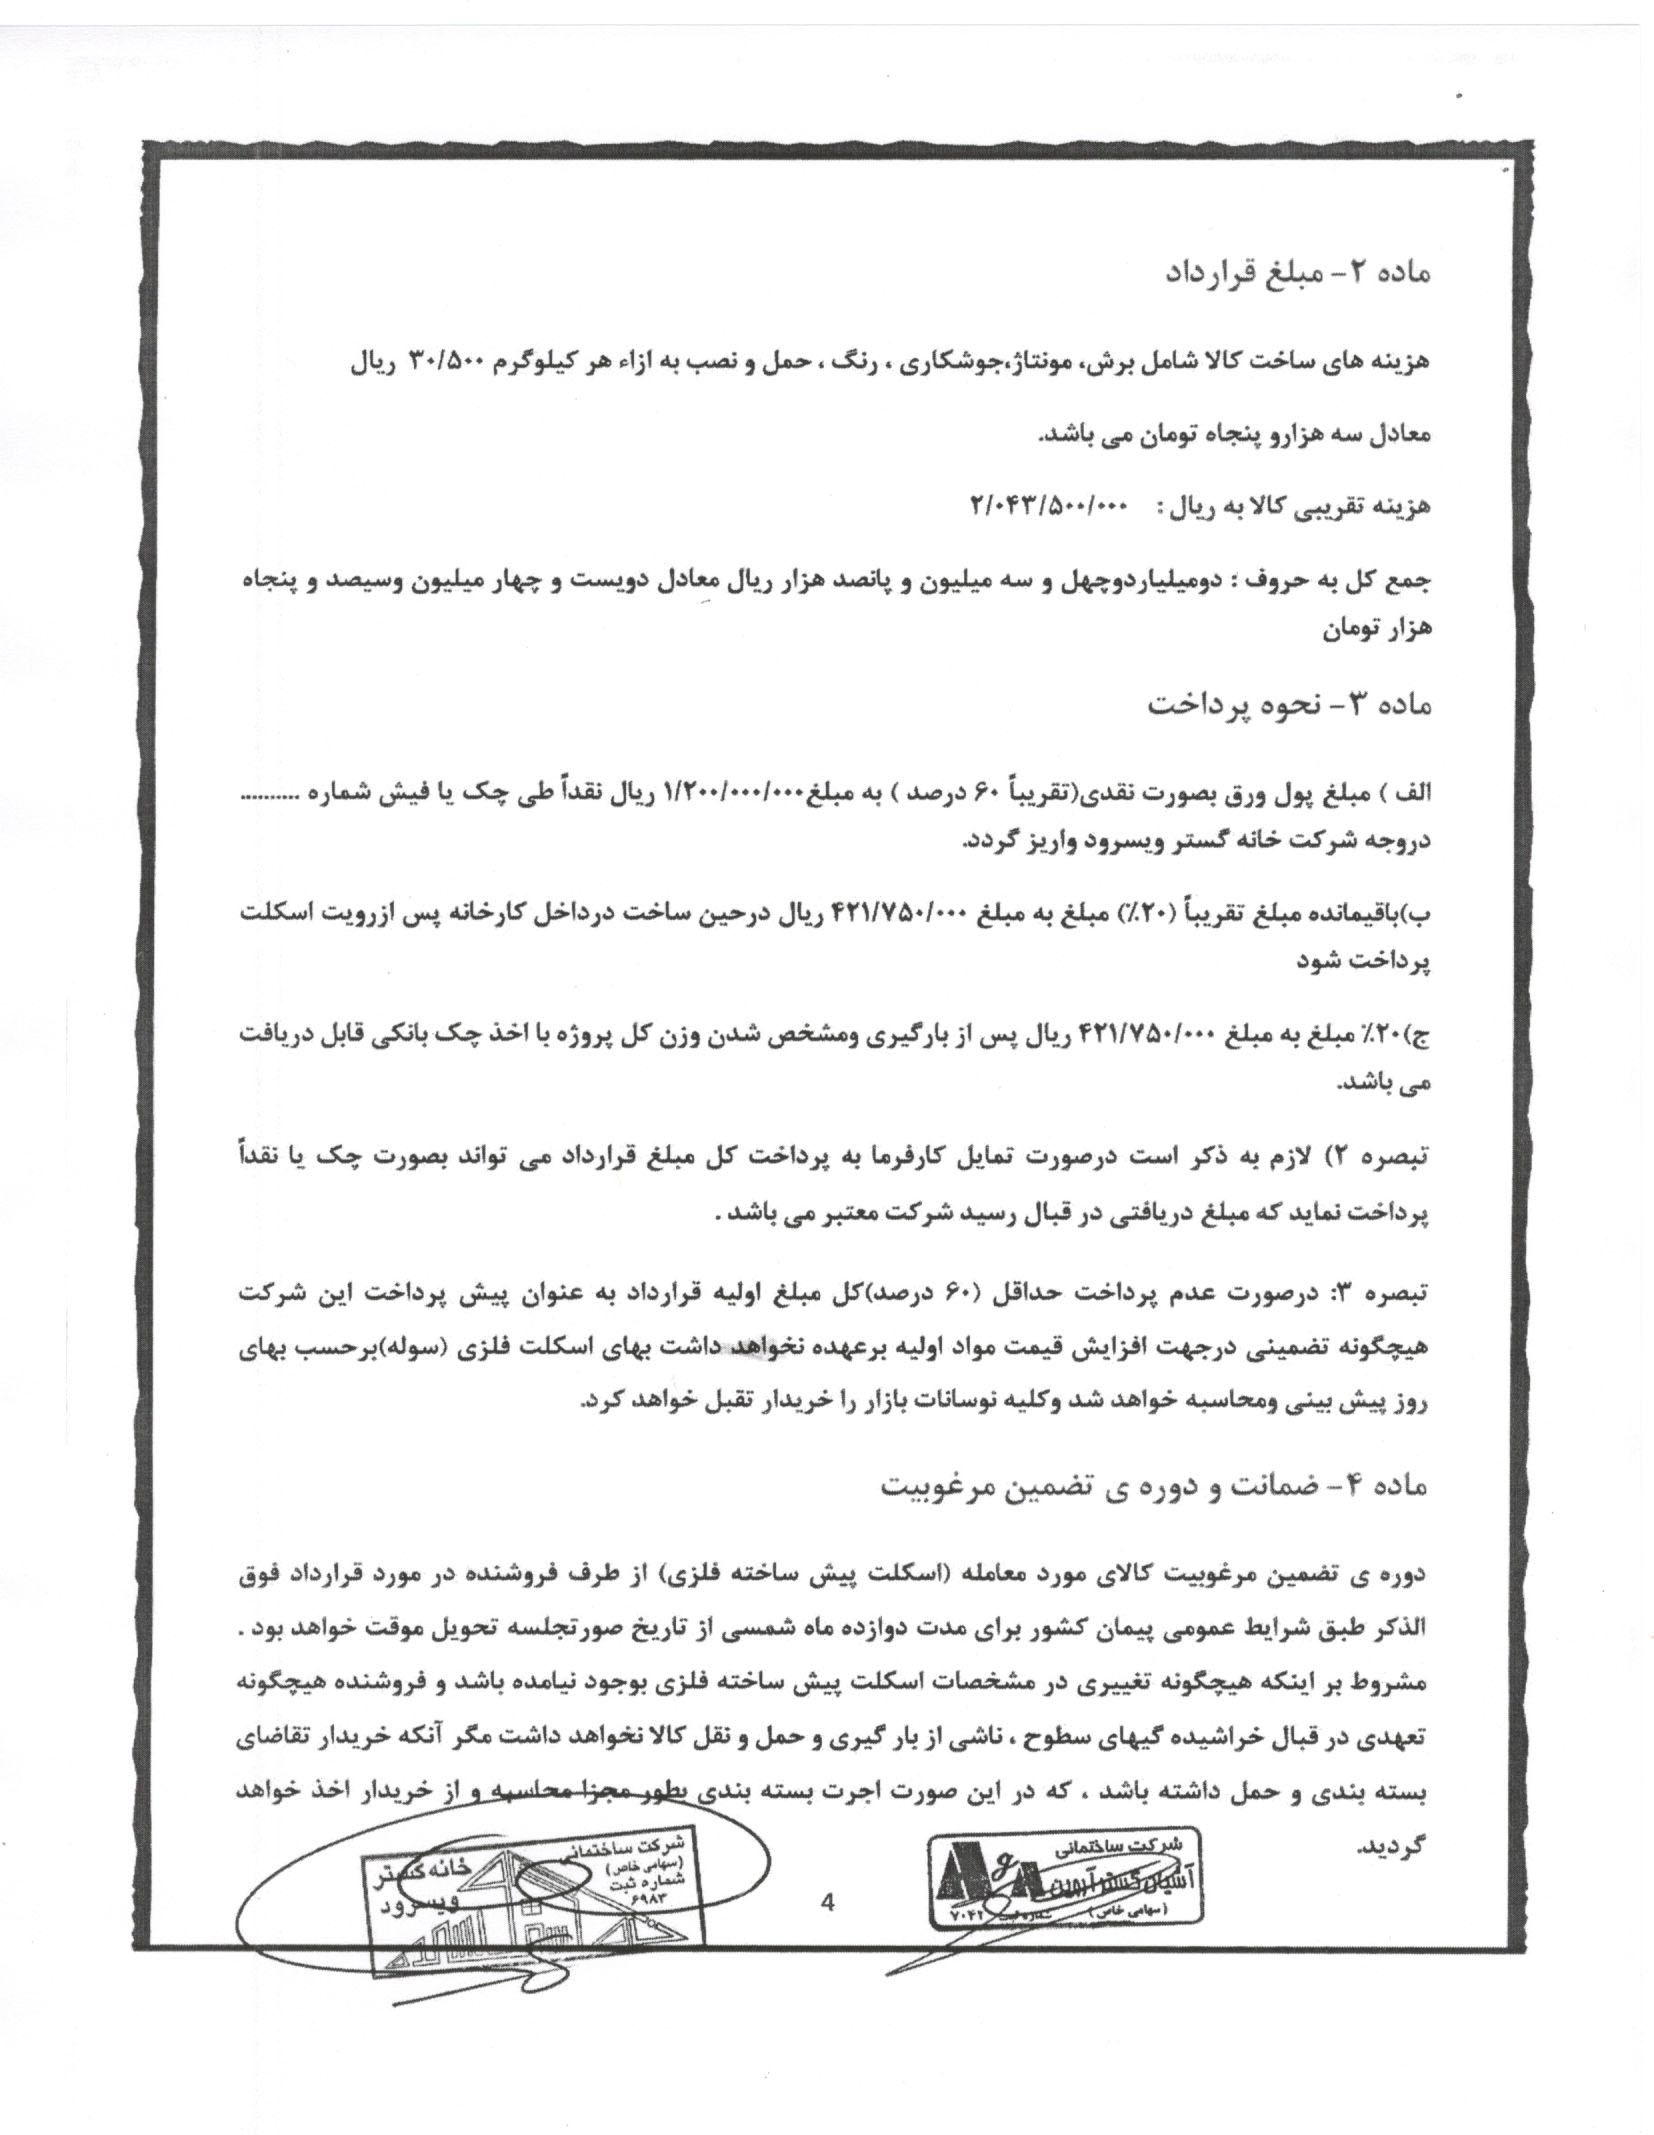 ماده ۲- مبلغ قرارداد
هزینه های ساخت کالا شامل برش، مونتاژ،جوشکاری ، رنگ ، حمل و نصب به ازاء هر کیلوگرم ۳۰/۵۰۰ ریال
معادل سه هزارو پنجاه تومان می باشد.
هزینه تقریبی کالا به ریال : ۲/۰۴۳/۵۰۰/۰۰۰
جمع کل به حروف : دومیلیاردوچهل و سه میلیون و پانصد هزار ریال معادل دویست و چهار میلیون وسیصد و پنجاه
هزار تومان
ماده ۳- نحوه پرداخت
الف ) مبلغ پول ورق بصورت نقدی(تقریباً ۶۰ درصد ) به مبلغ۱/۲۰۰/۰۰۰/۰۰۰ ریال نقداً طی چک یا فیش شماره ..........
دروجه شرکت خانه گستر ویسرود واریز گردد.
ب)باقیمانده مبلغ تقریباً (۲۰٪) مبلغ به مبلغ ۴۲۱/۷۵۰/۰۰۰ ریال درحین ساخت درداخل کارخانه پس ازرویت اسکلت
پرداخت شود
ج)۲۰٪ مبلغ به مبلغ ۴۲۱/۷۵۰/۰۰۰ ریال پس از بارگیری ومشخص شدن وزن کل پروژه با اخذ چک بانکی قابل دریافت
می باشد.
تبصره ۲) لازم به ذکر است درصورت تمایل کارفرما به پرداخت کل مبلغ قرارداد می تواند بصورت چک یا نقداً
پرداخت نماید که مبلغ دریافتی در قبال رسید شرکت معتبر می باشد .
تبصره ۳: درصورت عدم پرداخت حداقل (۶۰ درصد)کل مبلغ اولیه قرارداد به عنوان پیش پرداخت این شرکت
هیچگونه تضمینی درجهت افزایش قیمت مواد اولیه برعهده نخواهد داشت بهای اسکلت فلزی (سوله)برحسب بهای
روز پیش بینی ومحاسبه خواهد شد وکلیه نوسانات بازار را خریدار تقبل خواهد کرد.
ماده ۴- ضمانت و دوره ی تضمین مرغوبیت
دوره ی تضمین مرغوبیت کالای مورد معامله (اسکلت پیش ساخته فلزی) از طرف فروشنده در مورد قرارداد فوق
الذکر طبق شرایط عمومی پیمان کشور برای مدت دوازده ماه شمسی از تاریخ صورتجلسه تحویل موقت خواهد بود .
مشروط بر اینکه هیچگونه تغییری در مشخصات اسکلت پیش ساخته فلزی بوجود نیامده باشد و فروشنده هیچگونه
تعهدی در قبال خراشیده گیهای سطوح ، ناشی از بار گیری و حمل و نقل کالا نخواهد داشت مگر آنکه خریدار تقاضای
بسته بندی و حمل داشته باشد ، که در این صورت اجرت بسته بندی بطور مجزا محاسبه و از خریدار اخذ خواهد
گردید.
شرکت ساختمانی
آشیان گستر آروین
(سهامی خاص) شماره ثبت ۷۰۴۲
4
شرکت ساختمانی
(سهامی خاص)
شماره ثبت
۶۹۸۳
خانه گستر
ویسرود